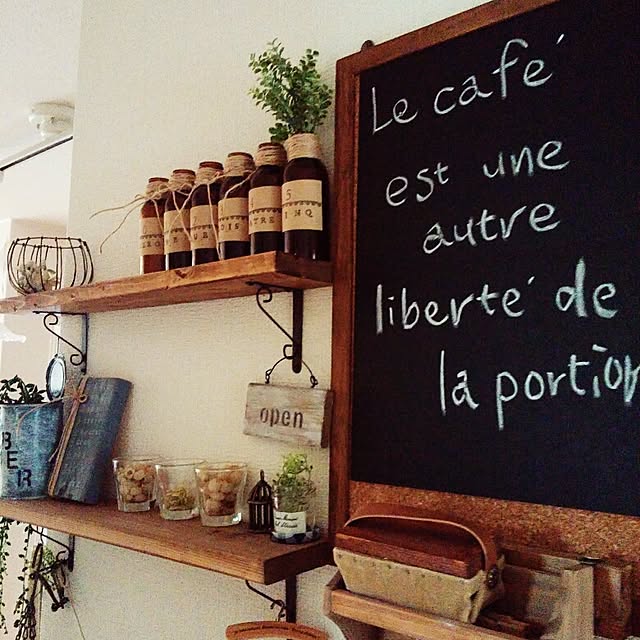 Le café
est une
autre
liberté de
la portion
5
INQ
open
BER